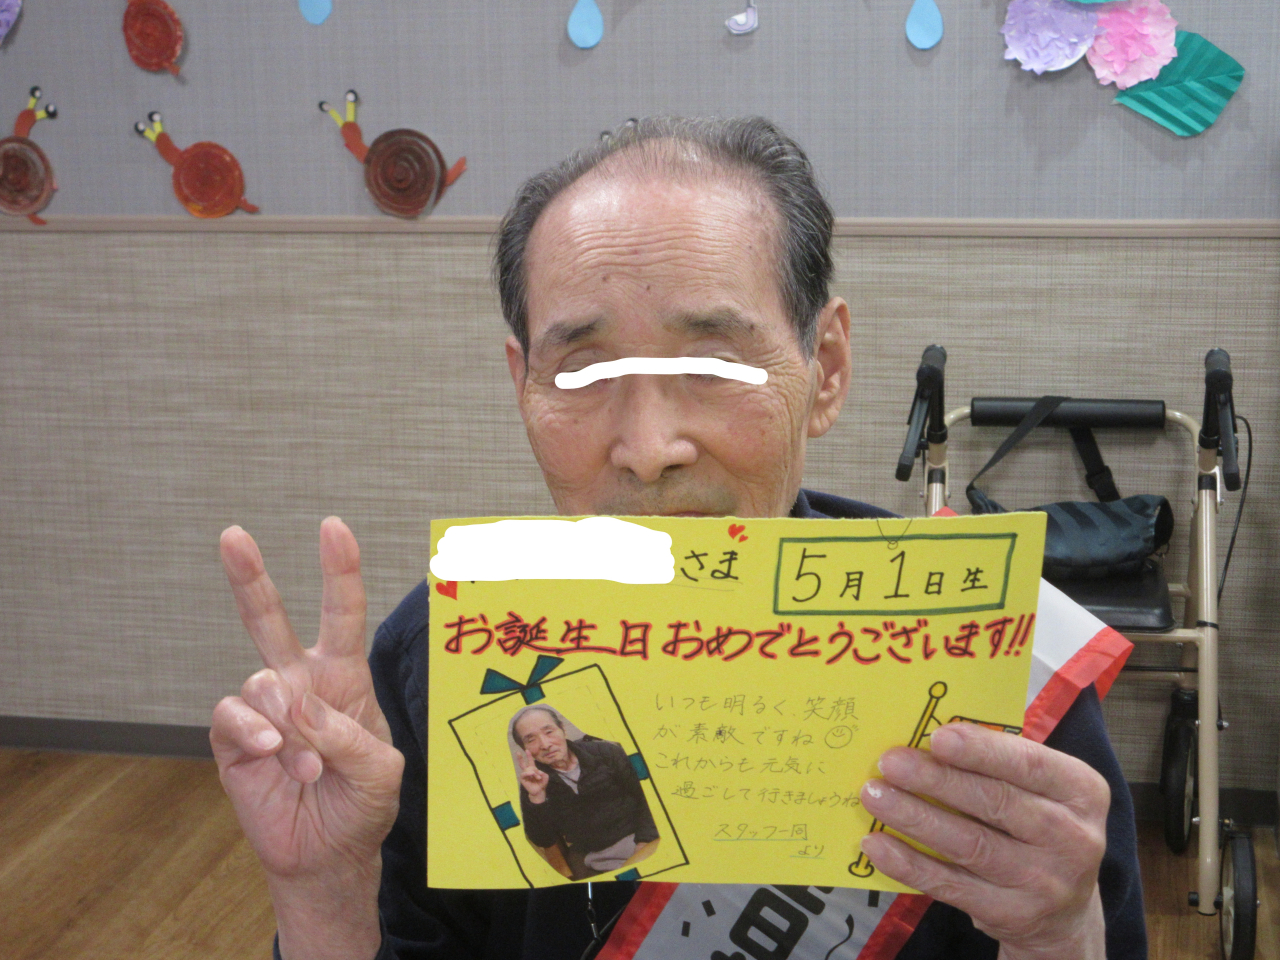 さま
5月1日生
お誕生日おめでとうございます!!
いつも明るく、笑顔
が素敵ですね
これからも元気に
過ごして行きましょうね
スタッフ一同
より